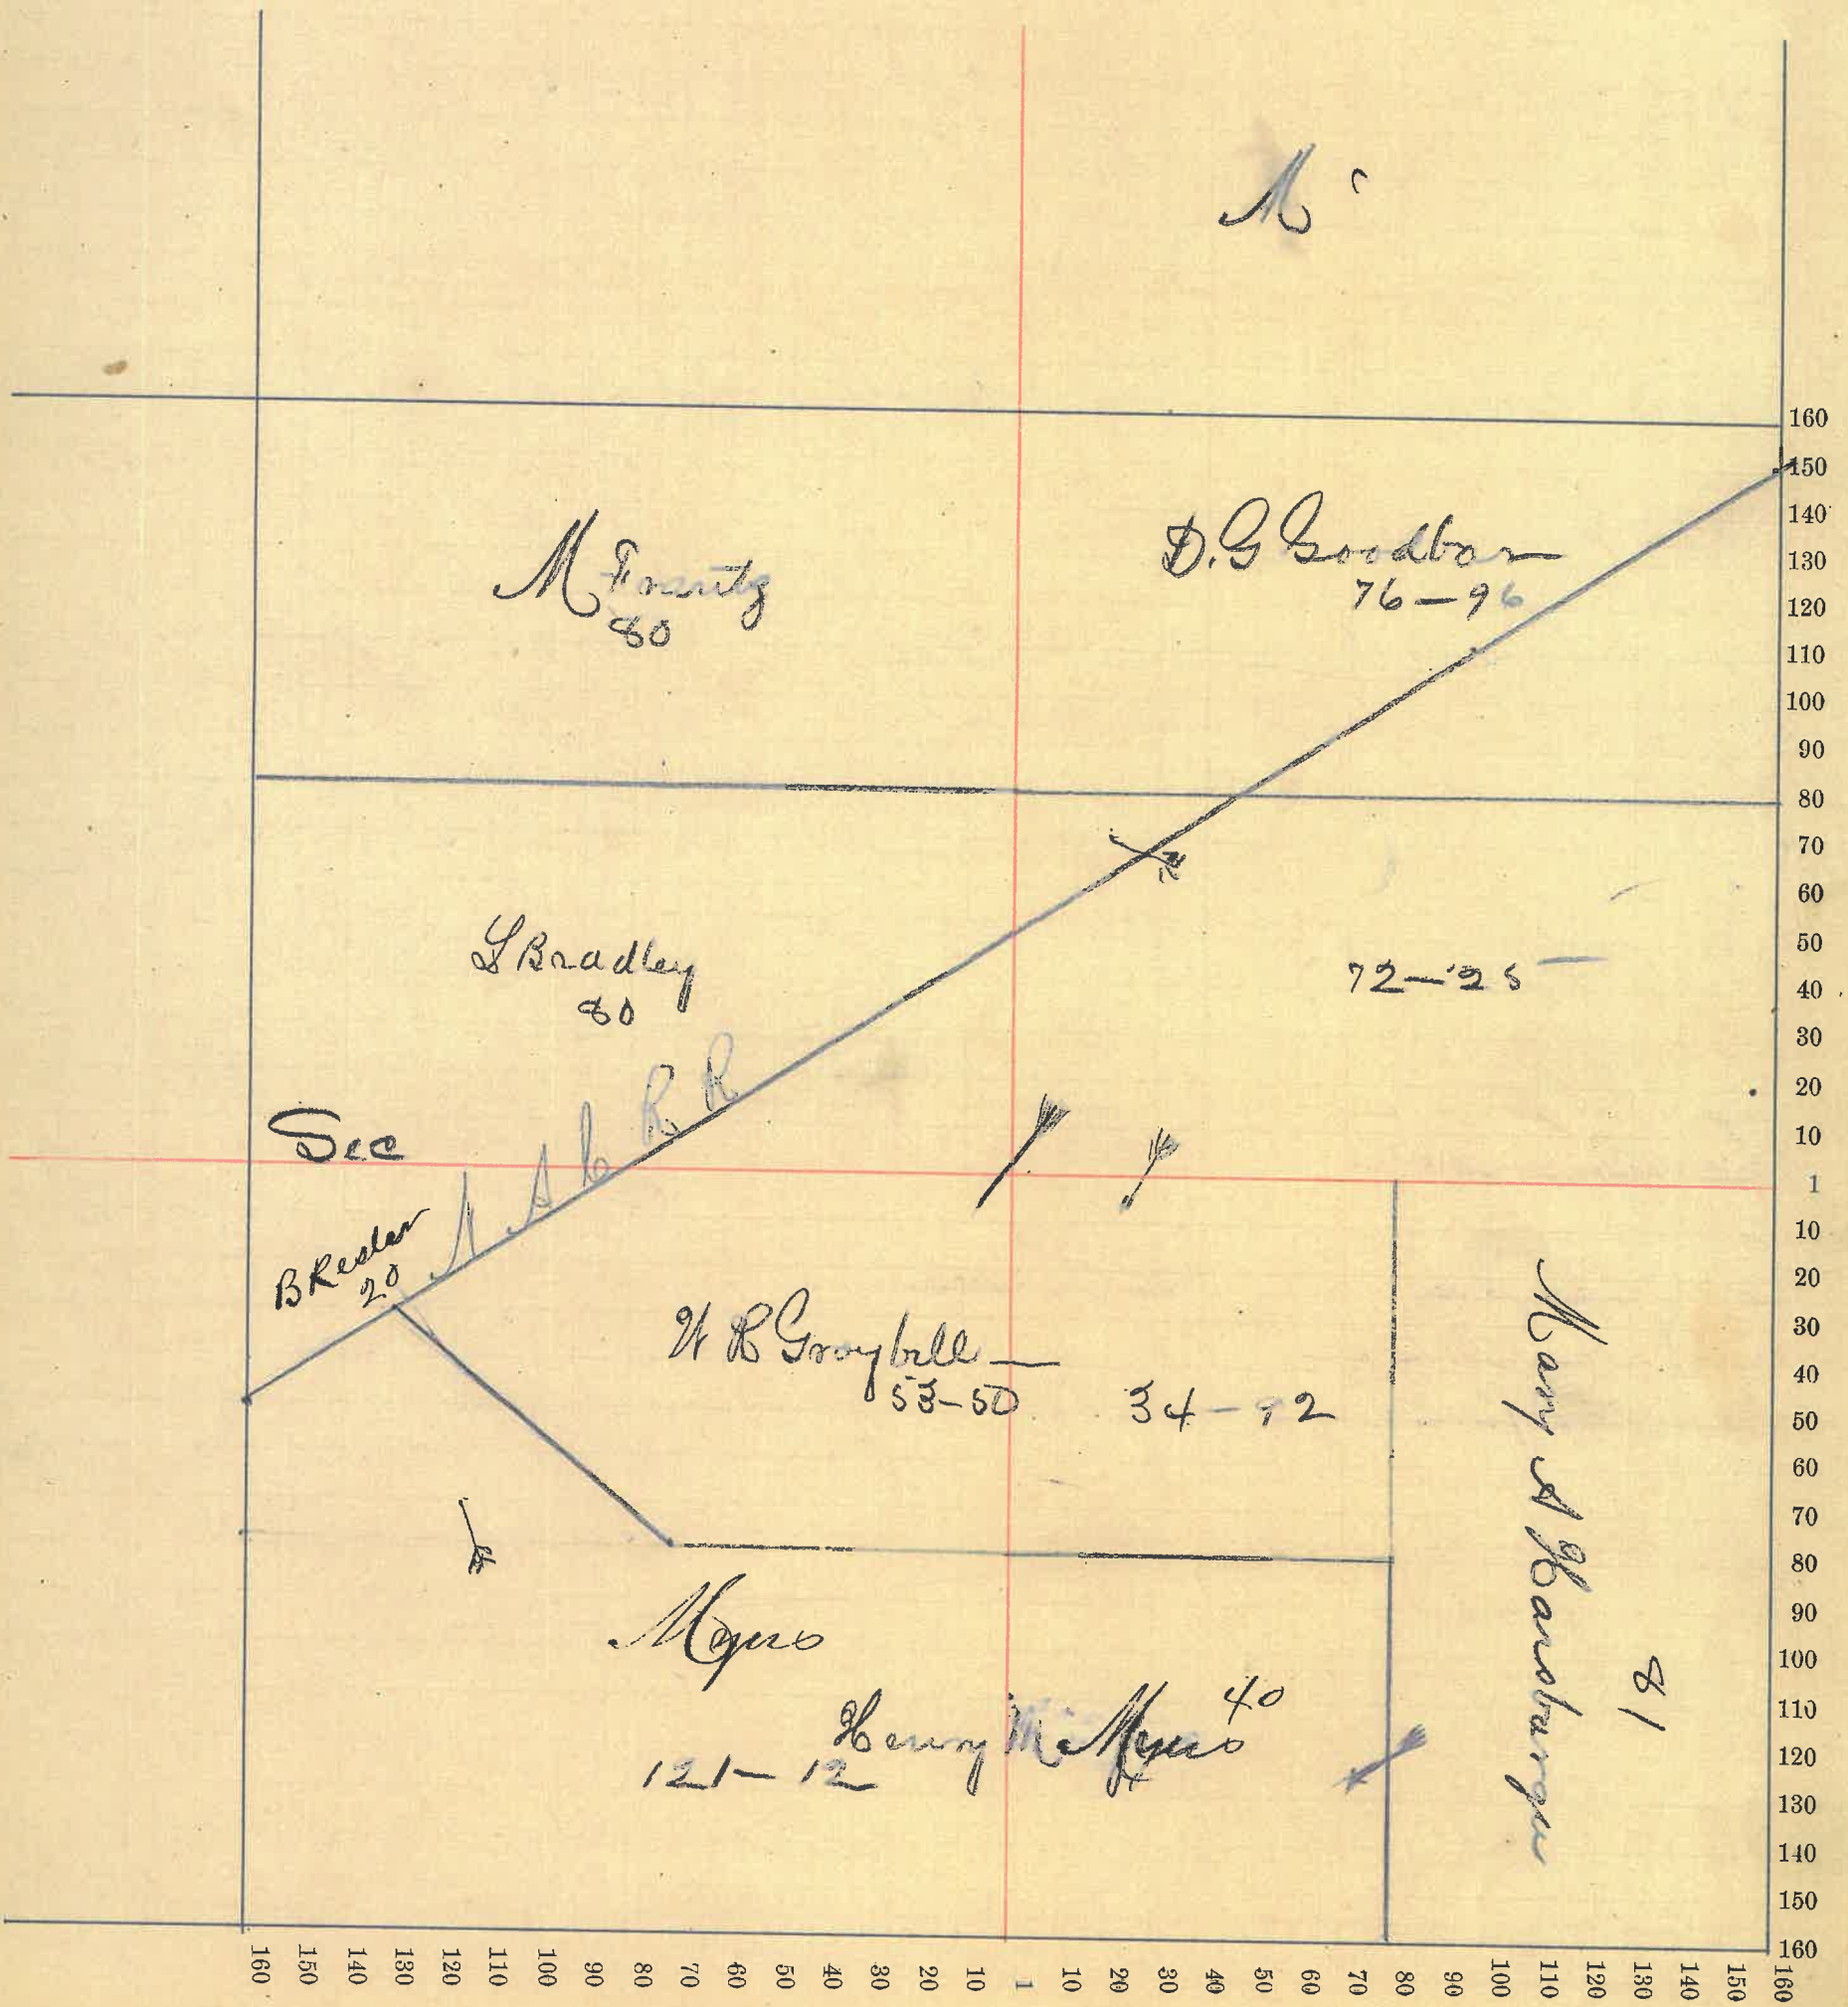 M
M Frantz
80
D. G Goodbar
76 — 96
L Bradley
80
72 — 25
Sec
R R
B Resler
20
W R Graybill
53 - 50
34 - 92
Mary A Harsbarger
81
Myers
Henry Myers
40
121 - 12
160
150
140
130
120
110
100
90
80
70
60
50
40
30
20
10
1
10
20
30
40
50
60
70
80
90
100
110
120
130
140
150
160
160 150 140 130 120 110 100 90 80 70 60 50 40 30 20 10 1 10 20 30 40 50 60 70 80 90 100 110 120 130 140 150 160